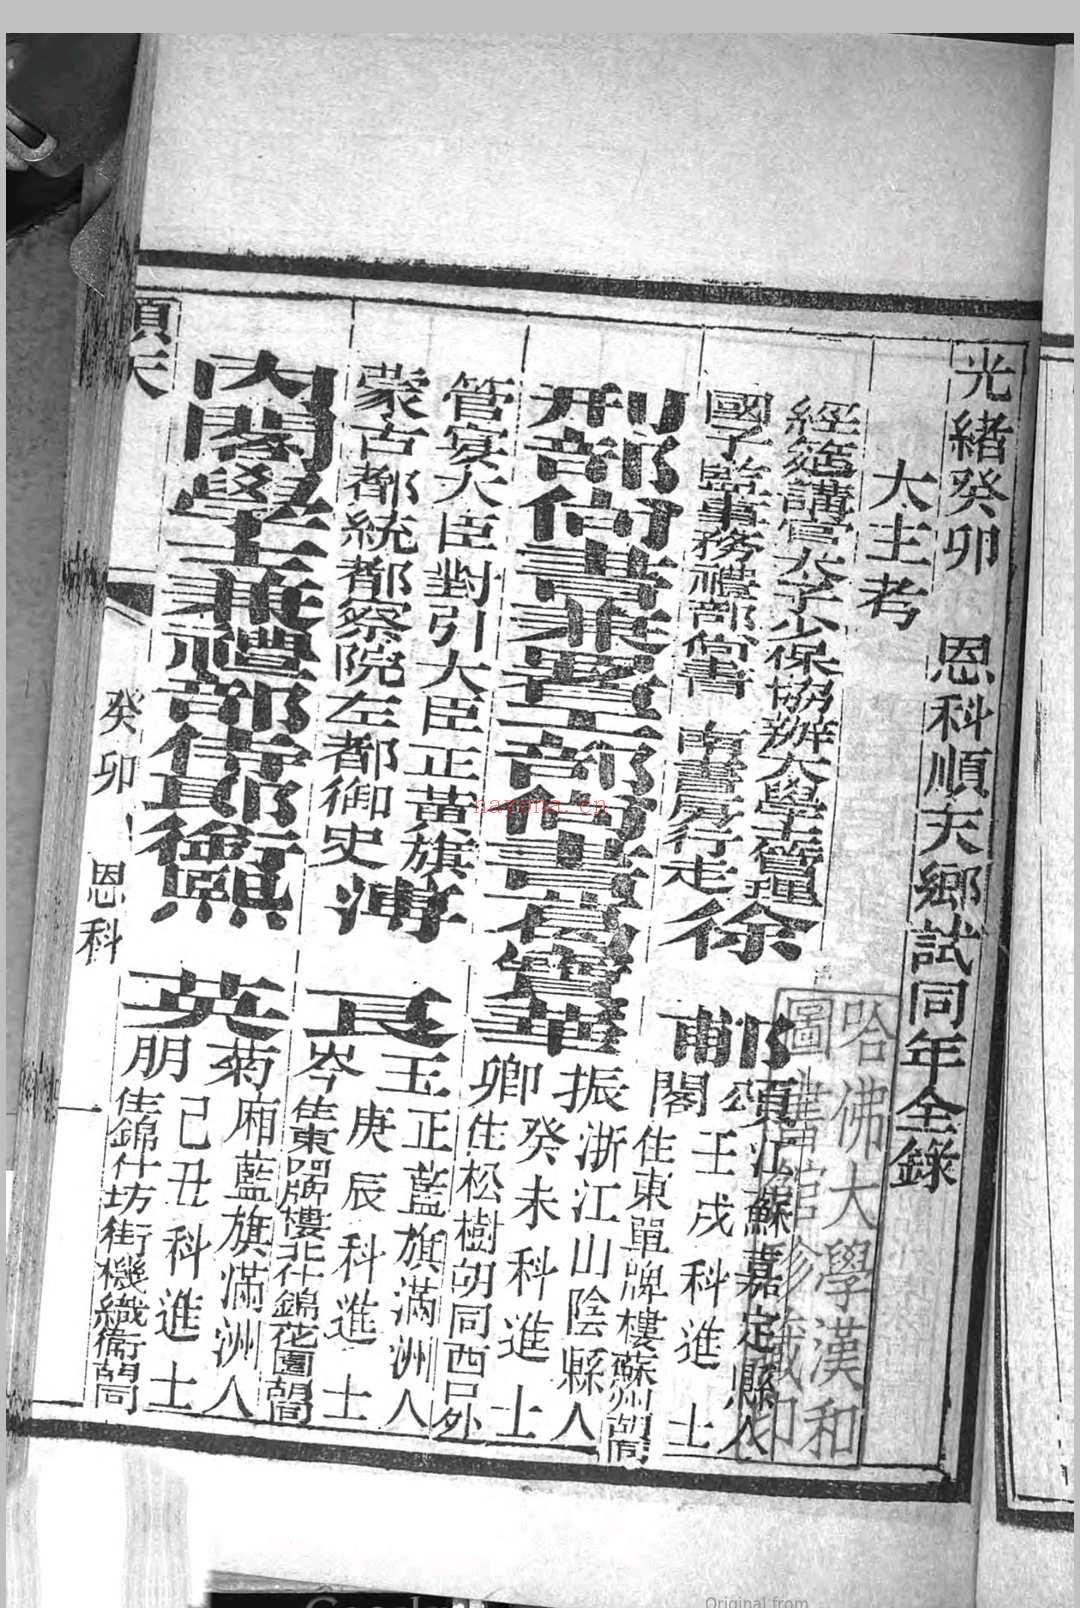 光緒癸卯 恩科順天鄉試同年全錄
大主考
經筵講官太子少保協辦大學士管理
國子監事務禮部尚書 南書房行走徐
郙
頌
閣
江蘇嘉定縣人
壬戌科進士
住東單牌樓蘇州胡同
刑部尚書兼署工部尚書葛寶華
振
卿
浙江山陰縣人
癸未科進士
住松樹胡同西口外
管宴大臣對引大臣正黃旗
蒙古都統都察院左都御史溥
良
玉
岑
正藍旗滿洲人
庚辰科進士
住東四牌樓北什錦花園胡同
內閣學士兼禮部侍郎銜熙
英
菊
朋
廂藍旗滿洲人
己丑科進士
住錦什坊街機織衛胡同
順天
癸卯 恩科
哈佛大學漢和
圖書館珍藏印
nayona.cn
Google
Original from